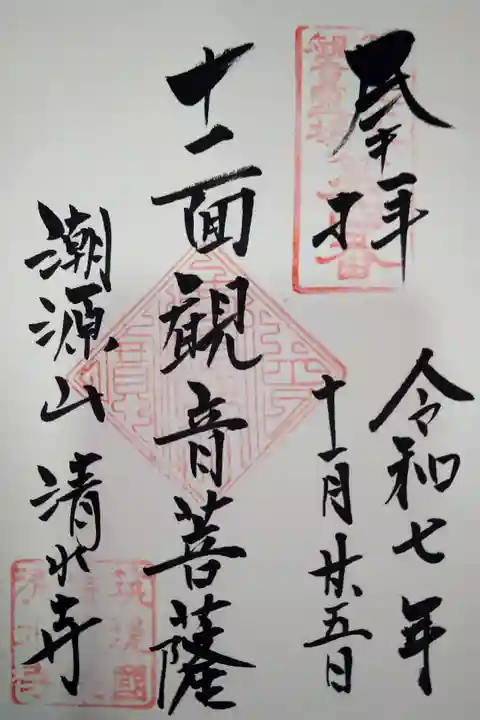 奉拝
令和七年
十一月廿五日
十一面観音菩薩
潮源山 清水寺